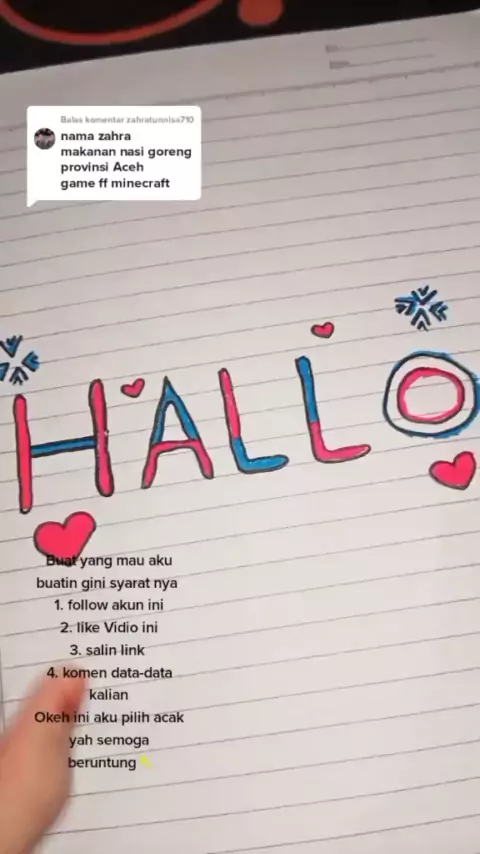 Balas komentar zahratunnisa710
nama zahra
makanan nasi goreng
provinsi Aceh
game ff minecraft
HALLO
Buat yang mau aku
buatin gini syarat nya
1. follow akun ini
2. like Vidio ini
3. salin link
4. komen data-data
kalian
Okeh ini aku pilih acak
yah semoga
beruntung